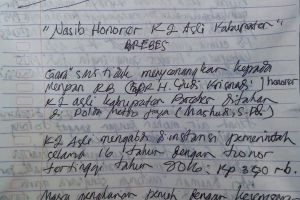 "Nasib Honorer K2 Asli Kabupaten"
BREBES
Gara² sms tidak menyenangkan kepada
menpan RB (Bpk H. Yudi Krisnadi) honorer
K2 asli kabupaten Brebes ditahan
di Polda metro jaya (Mashudi S.Pd)
K2 Asli mengabdi di instansi pemerintah
selama 16 tahun dengan honor
tertinggi tahun 2016: Rp 350 rb.
penuh dengan